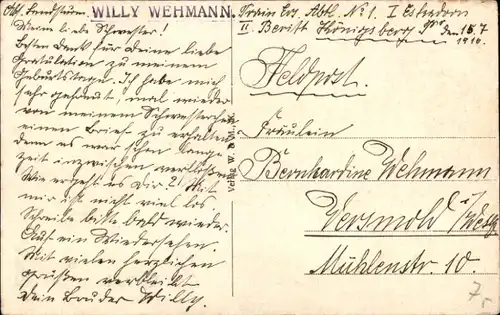 WILLY WEHMANN.
Train Ers. Abtl. No 1. I Eskadron
II Beritt Königsberg Pr. den 15.7
1916.
Meine liebe Schwester!
Besten Dank für Deine liebe
Gratulation zu meinem
Geburtstage. Ich habe mich
sehr gefreut, mal wieder
von meinem Schwesterchen
einen Brief zu erhalten
denn es war schon lange
zeit inzwischen verflossen
Wie ergeht es Dir? Mit
mir ist nicht viel los
Schreibe bitte bald wieder.
Auf ein Wiedersehen.
Mit vielen herzlichen
Grüßen verbleibt
Dein Bruder Willy.
Verlag W.
Feldpost.
Fräulein
Bernhardine Wehmann
Versmold i/Westf
Mühlenstr. 10.
7